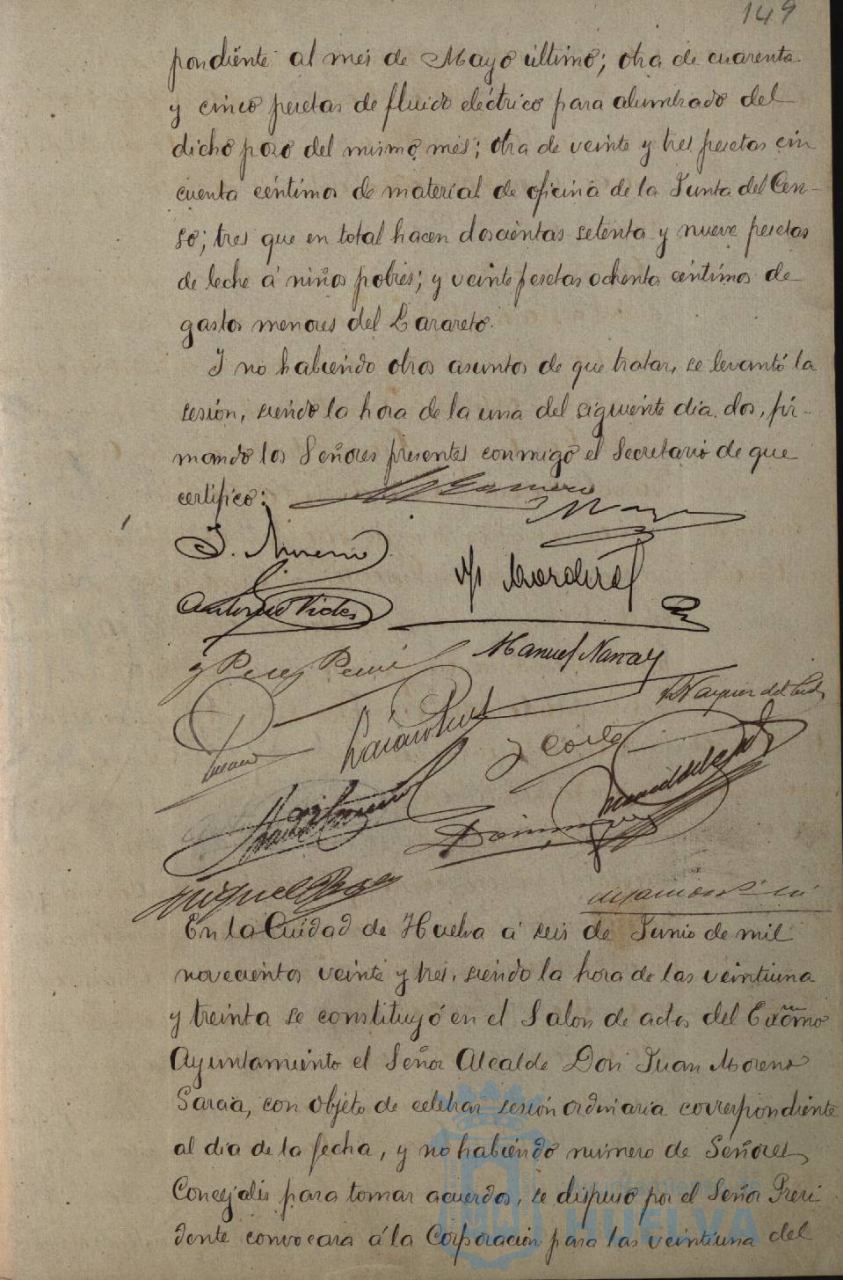 149
pondiente al mes de Mayo último; otra de cuarenta
y cinco pesetas de fluido eléctrico para alumbrado del
dicho pozo del mismo mes; otra de veinte y tres pesetas cin
cuenta céntimos de material de oficina de la Junta del Cen-
so; tres que en total hacen doscientas setenta y nueve pesetas
de leche á niños pobres; y veinte pesetas ochenta céntimos de
gastos menores del Lazareto.
Y no habiendo otros asuntos de que tratar, se levantó la
sesión, siendo la hora de la una del siguiente dia dos, fir-
mando los Señores presentes conmigo el Secretario de que
certifico:
J. Moreno
Antonio Vides
Manuel Narváy
J Corté
Domínguez
Miguel
En la Ciudad de Huelva á seis de Junio de mil
novecientos veinte y tres, siendo la hora de las veintiuna
y treinta se constituyó en el Salon de actos del Excmo
Ayuntamiento el Señor Alcalde Don Juan Moreno
Garcia, con objeto de celebrar sesión ordinaria correspondiente
al dia de la fecha, y no habiendo número de Señores
Concejales para tomar acuerdos, se dispuso por el Señor Presi
dente convocara á la Corporación para las veintiuna del
HUELVA